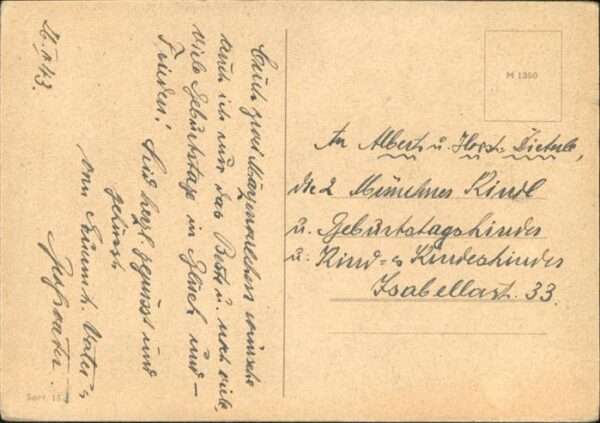 26. 43.
Euch zwei wünsche
auch ich nur das Beste u. noch viele,
viele Geburtstage in Glück und -
Frieden!
Seid herzl. gegrüsst und
geküsst
von Vater =
Großvater.
M 1350
An Albert u. Horst Dieterle,
die 2 Münchner Kindl
u. Geburtstagskinder
u. Kind = s Kindeskinder
Isabellastr. 33.